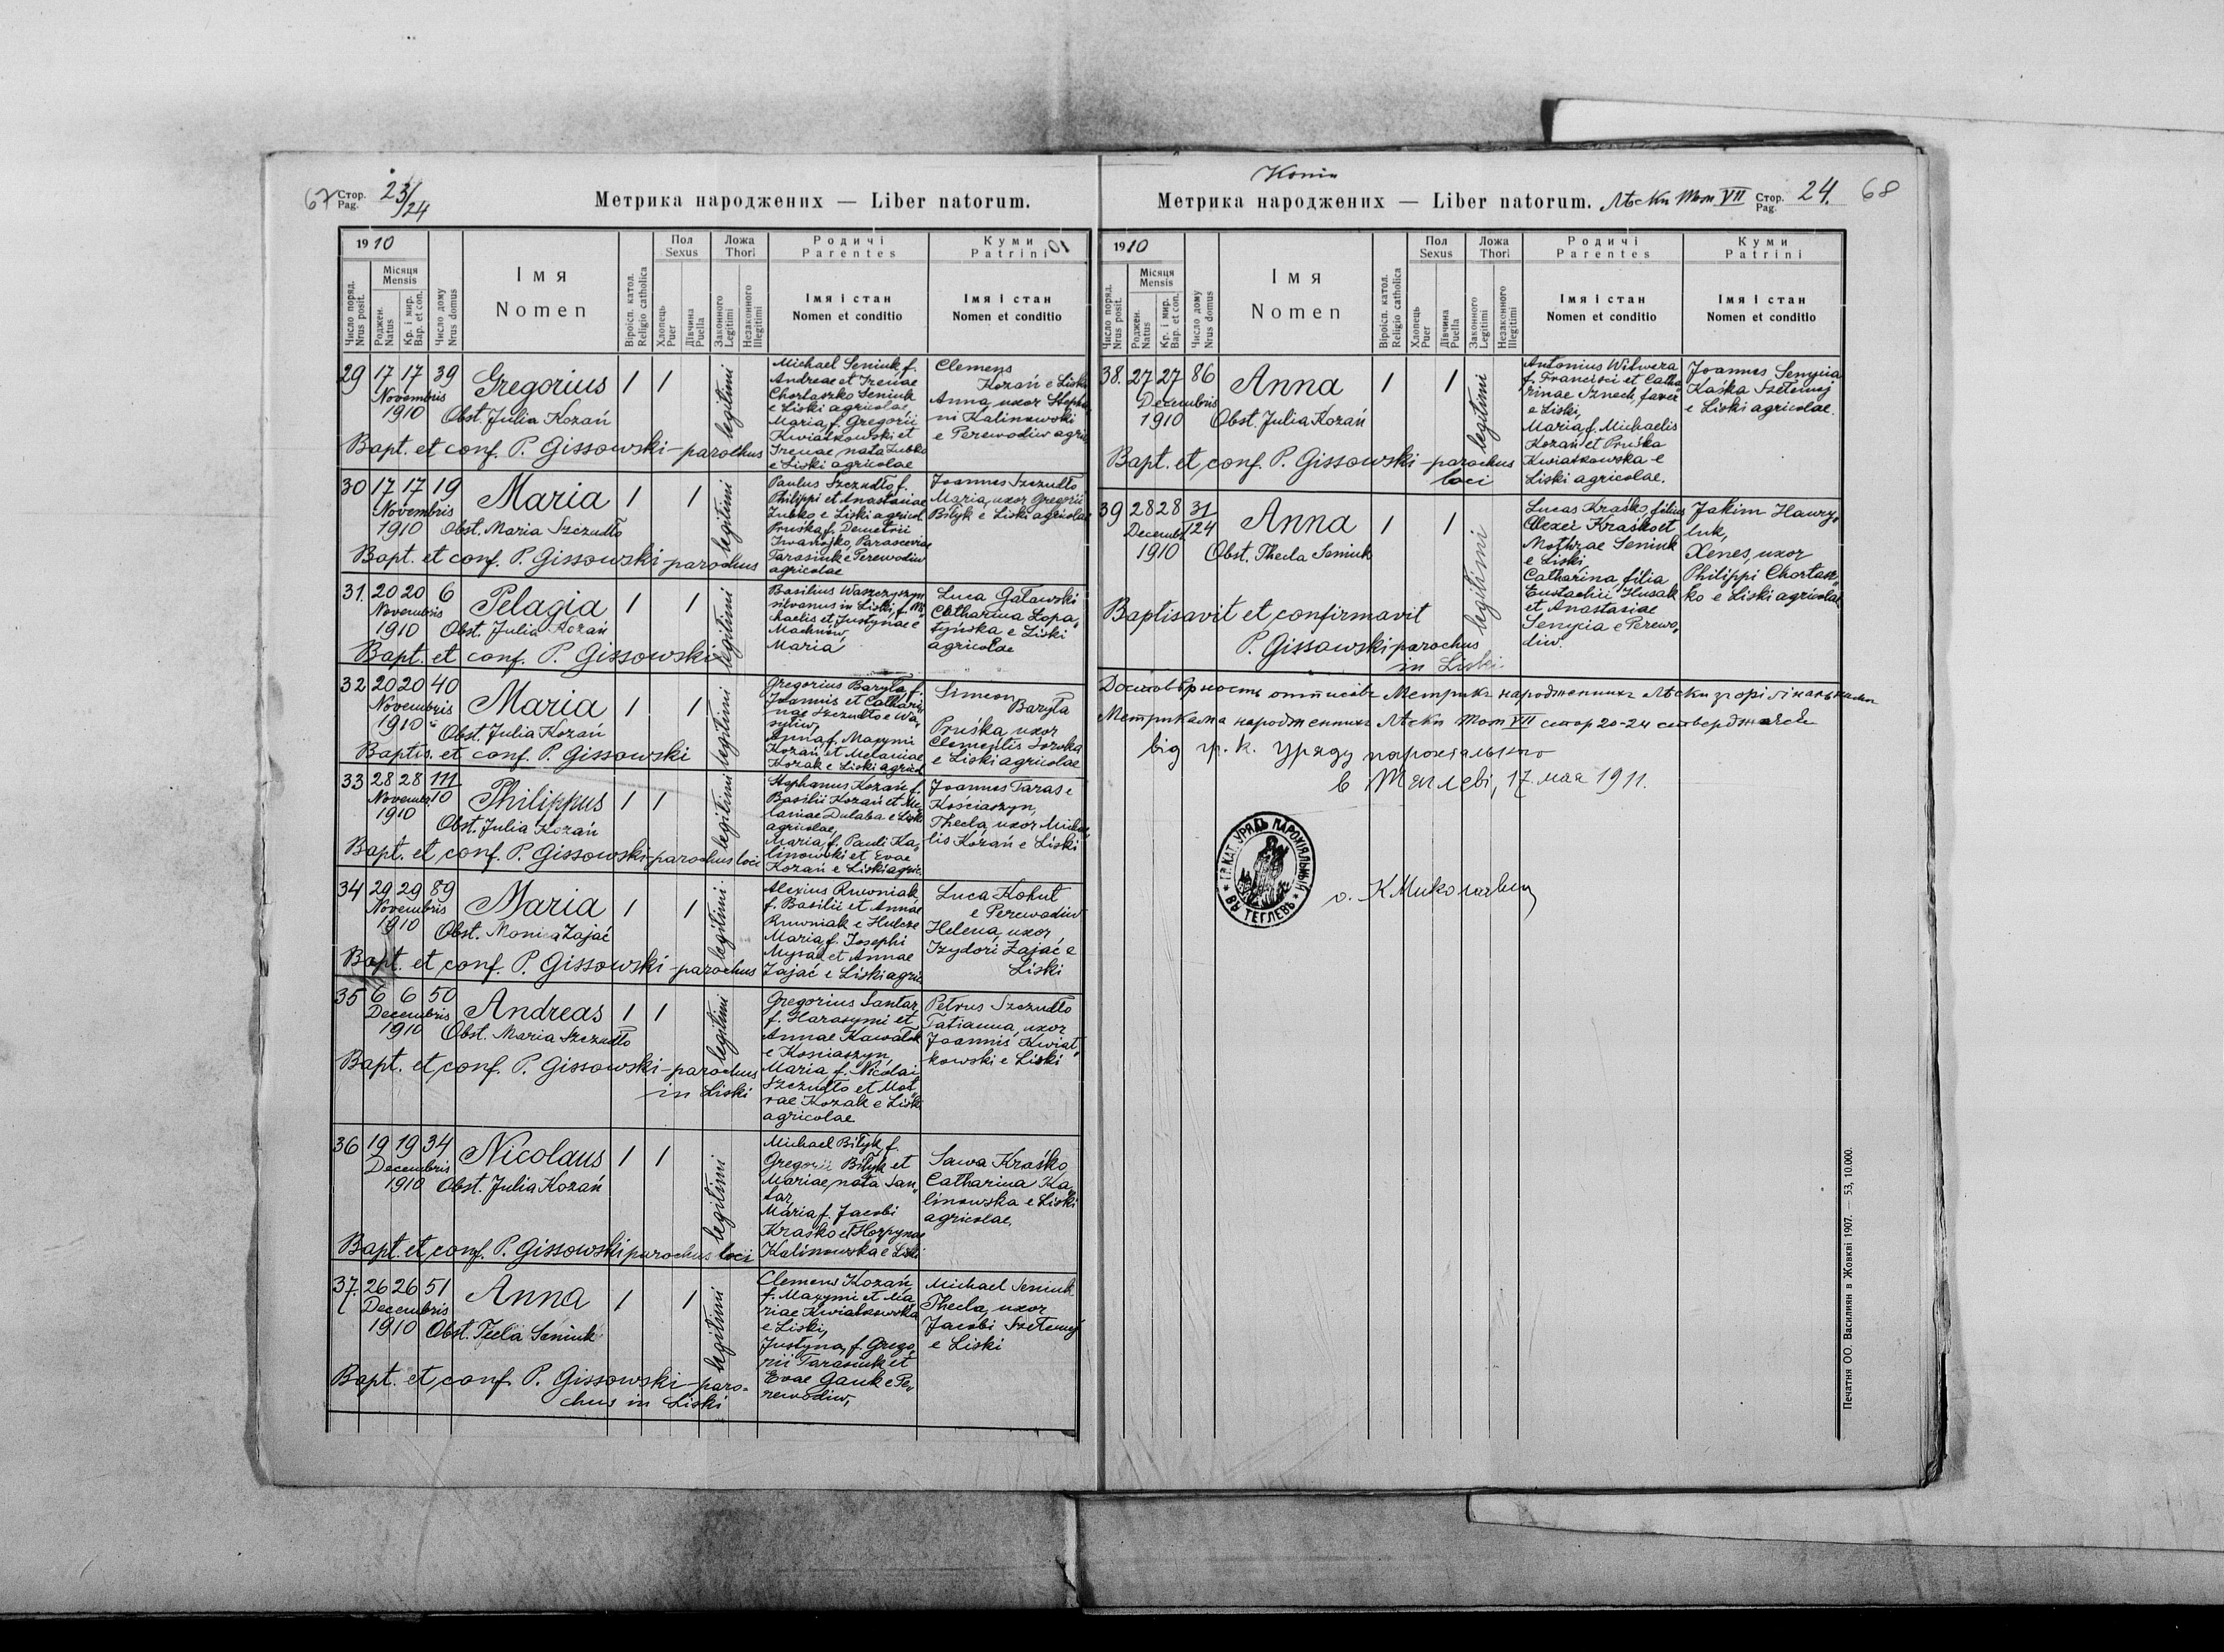 67 Стор. Pag. 23/24
Метрика народжених — Liber natorum.
1910
Число поряд. Nrus posit.
Місяця Mensis
Роджен. Natus
Кр. і мир. Bap. et con.
Число дому Nrus domus
Імя
Nomen
Віроісп. катол. Religio catholica
Пол Sexus
Хлопець Puer
Дівчина Puella
Ложа Thori
Законного Legitimi
Незаконного Illegitimi
Родичі
Parentes
Імя і стан
Nomen et conditio
Куми
Patrini
Імя і стан
Nomen et conditio
29 17 17 39 Gregorius 1 1 legitimi
Novembris
1910 Obst. Julia Kozań
Bapt. et conf. P. Gissowski - parochus
Michael Seniuk f.
Andreae et Irenae
Chortaszko Seniuk
e Liski agricolae,
Maria, f. Gregorii
Kwiatkowski et
Irenae, nata Zubko
e Liski agricolae
Clemens
Kozań e Liski
Anna, uxor Stepha
ni Kalinowski
e Perewodiw agric
30 17 17 19 Maria 1 1 legitimi
Novembris
1910 Obst. Maria Szczudło
Bapt. et conf. P. Gissowski - parochus
Paulus Szczudło f.
Philippi et Anastasiae
Zubko e Liski agricol.
Pruśka, f. Demetrii
Iwanojko, Parasceviae
Tarasiuk e Perewodiw
agricolae
Joannes Szczudło
Maria, uxor Gregorii
Biłyk e Liski agricolae
31. 20 20 6 Pelagia 1 1 legitimi
Novembris
1910 Obst. Julia Kozań
Bapt. et conf. P. Gissowski
Basilius Waszczyszyn
silvanus in Liski, f. Mi
chaelis et Justynae e
Machnów,
Maria
Luca Gaławski
Catharina Łopa„
tyńska e Liski
agricolae
32 20 20 40 Maria 1 1 legitimi
Novembris
1910 Obst. Julia Kozań
Baptis. et conf. P. Gissowski
Gregorius Baryła f.
Joannis et Cathari„
nae Szczudło e Wa„
sytiw,
Anna f. Maxymi
Kozań et Melaniae
Kozak e Liski agricol
Simeon
Baryła
Pruśka, uxor
Clementis Sozoka
e Liski agricolae
33 28 28 111/10 Philippus 1 1 legitimi
Novembr.
1910 Obst. Julia Kozań
Bapt. et conf. P. Gissowski - parochus loci
Stephanus Kozań f.
Basilii Kozań et Me
laniae Dulaba e Liski
agricolae,
Maria, f. Pauli Ka„
linowski et Evae
Kozań e Liski agric.
Joannes Taras e
Kościaszyn,
Thecla, uxor Micha„
lis Kozań e Liski
34 29 29 89 Maria 1 1 legitimi.
Novembris
1910 Obst. Monica Zając
Bapt. et conf. P. Gissowski - parochus
Alexius Ruwniak,
f. Basilii et Annae
Ruwniak e Hulcze
Maria, f. Josephi
Mysak et Annae
Zając e Liski agric
Luca Kohut
e Perewodiw
Helena, uxor
Izydori Zając e
Liski
35 6 6 50 Andreas 1 1 legitimi
Decembris
1910 Obst. Maria Szczudło
Bapt. et conf. P. Gissowski - parochus
in Liski
Gregorius Santar,
f. Harasymi et
Annae Kawałok
e Kosciaszyn,
Maria f. Nicolai
Szczudło et Mot„
rae Kozak e Liski
agricolae
Petrus Szczudło
Tatianna, uxor
Joannis Kwiat„
kowski e Liski
36 19 19 34 Nicolaus 1 1 legitimi
Decembris
1910 Obst. Julia Kozań
Bapt. et conf. P. Gissowski parochus loci
Michael Biłyk f.
Gregorii Biłyk et
Mariae, nata San„
tar,
Maria f. Jacobi
Kraśko et Horpynae
Kalinowska e Liski
Sawa Kraśko,
Catharina Ka„
linowska e Liski
agricolae.
37. 26 26 51 Anna 1 1 legitimi
Decembris
1910 Obst. Tecla Seniuk
Bapt. et conf. P. Gissowski - paro-
chus in Liski
Clemens Kozań
f. Maxymi et Ma
riae Kwiatkowska
e Liski,
Justyna, f. Grego„
rii Tarasiuk et
Evae Gauk e Pe„
rewodiw,
Michael Seniuk
Thecla, uxor
Jacobi Szetemej
e Liski
Метрика народжених — Liber natorum. Лѣски Том VII Стор. Pag. 24. 68
1910
Число поряд. Nrus posit.
Місяця Mensis
Роджен. Natus
Кр. і мир. Bap. et con.
Число дому Nrus domus
Імя
Nomen
Віроісп. катол. Religio catholica
Пол Sexus
Хлопець Puer
Дівчина Puella
Ложа Thori
Законного Legitimi
Незаконного Illegitimi
Родичі
Parentes
Імя і стан
Nomen et conditio
Куми
Patrini
Імя і стан
Nomen et conditio
38. 27 27 86 Anna 1 1 legitimi
Decembris
1910 Obst. Julia Kozań
Bapt. et conf. P. Gissowski - parochus
loci
Antonius Witwera
f. Francisci et Catha
rinae Sznech, faver
e Liski,
Maria, f. Michaelis
Kozań et Pruśka
Kwiatkowska e
Liski agricolae.
Joannes Senycia
Kaśka Szetemej
e Liski agricolae.
39 28 28 31/124 Anna 1 1 legitimi
Decembr.
1910 Obst. Thecla Seniuk
Baptisavit et confirmavit
P. Gissowski parochus
in Liski
Lucas Kraśko, filius
Alexii Kraśko et
Mothrae Seniuk
e Liski,
Catharina, filia
Eustachii Husak
et Anastasiae
Senycia e Perewo„
diw.
Jakim Hawry„
luk,
Xenes, uxor
Philippi Chortasz„
ko e Liski agricolae
Достовѣрность отписôвъ Метрикъ народженныхъ Лѣски з орiгiнальными
Метриками народженныхъ Лѣски том VII стор 20-24 стверджаєся
від гр. к. Уряду парохіального
в Теглеві, 17. мая 1911.
ГР. КАТ. УРЯДЪ ПАРОХІЯЛЬНЫЙ
ВЪ ТЕГЛЕВѢ
о. К Миколаевич
Печатня ОО. Василиян в Жовкві 1907. — 53, 10.000.